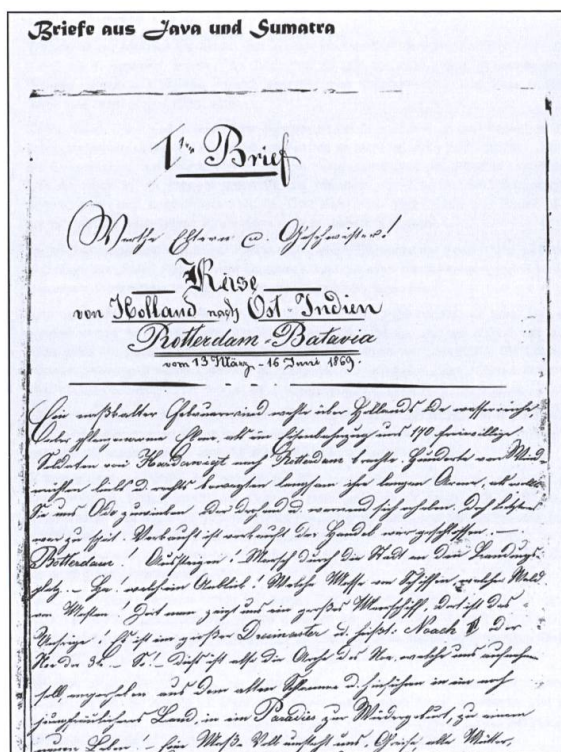 Briefe aus Java und Sumatra
1ter Brief
Werthe Eltern & Geschwister!
Reise
von Holland nach Ost Indien
Rotterdam-Batavia
vom 13 März - 16 Juni 1869
Ein naßkalter Februarwind wehte über Hollands
als ein Eisenbahnzug uns 170 freiwillige
Soldaten von Harderwigk nach Rotterdam brachte. Hunderte von Wind
mühlen links & rechts bewegten langsam ihre langen Arme, als wollten
Sie uns warnend sich erheben. Doch letztere
war zu spät. Verkauft ist verkauft der Handel war geschlossen. —
Rotterdam! Aussteigen! Marsch durch die Stadt an den Landungs
platz. — Ha! welch ein Anblick! Welche Masse von Schiffen, welche Wald
von Masten! Dort man zeigt uns ein großes Meerschiff, dort ist das
Unsrige! Es ist ein großer Dreimaster & heißt: Noach V der
dieß ist also die Arche des Noe, welche uns aufnehmen
soll aus dem alten & hinüber in ein noch
jungfräuliches Land, in ein Paradies zur Wiedergeburt, zu einem
neuen Leben! — Eine Masse Volk umsteht uns,